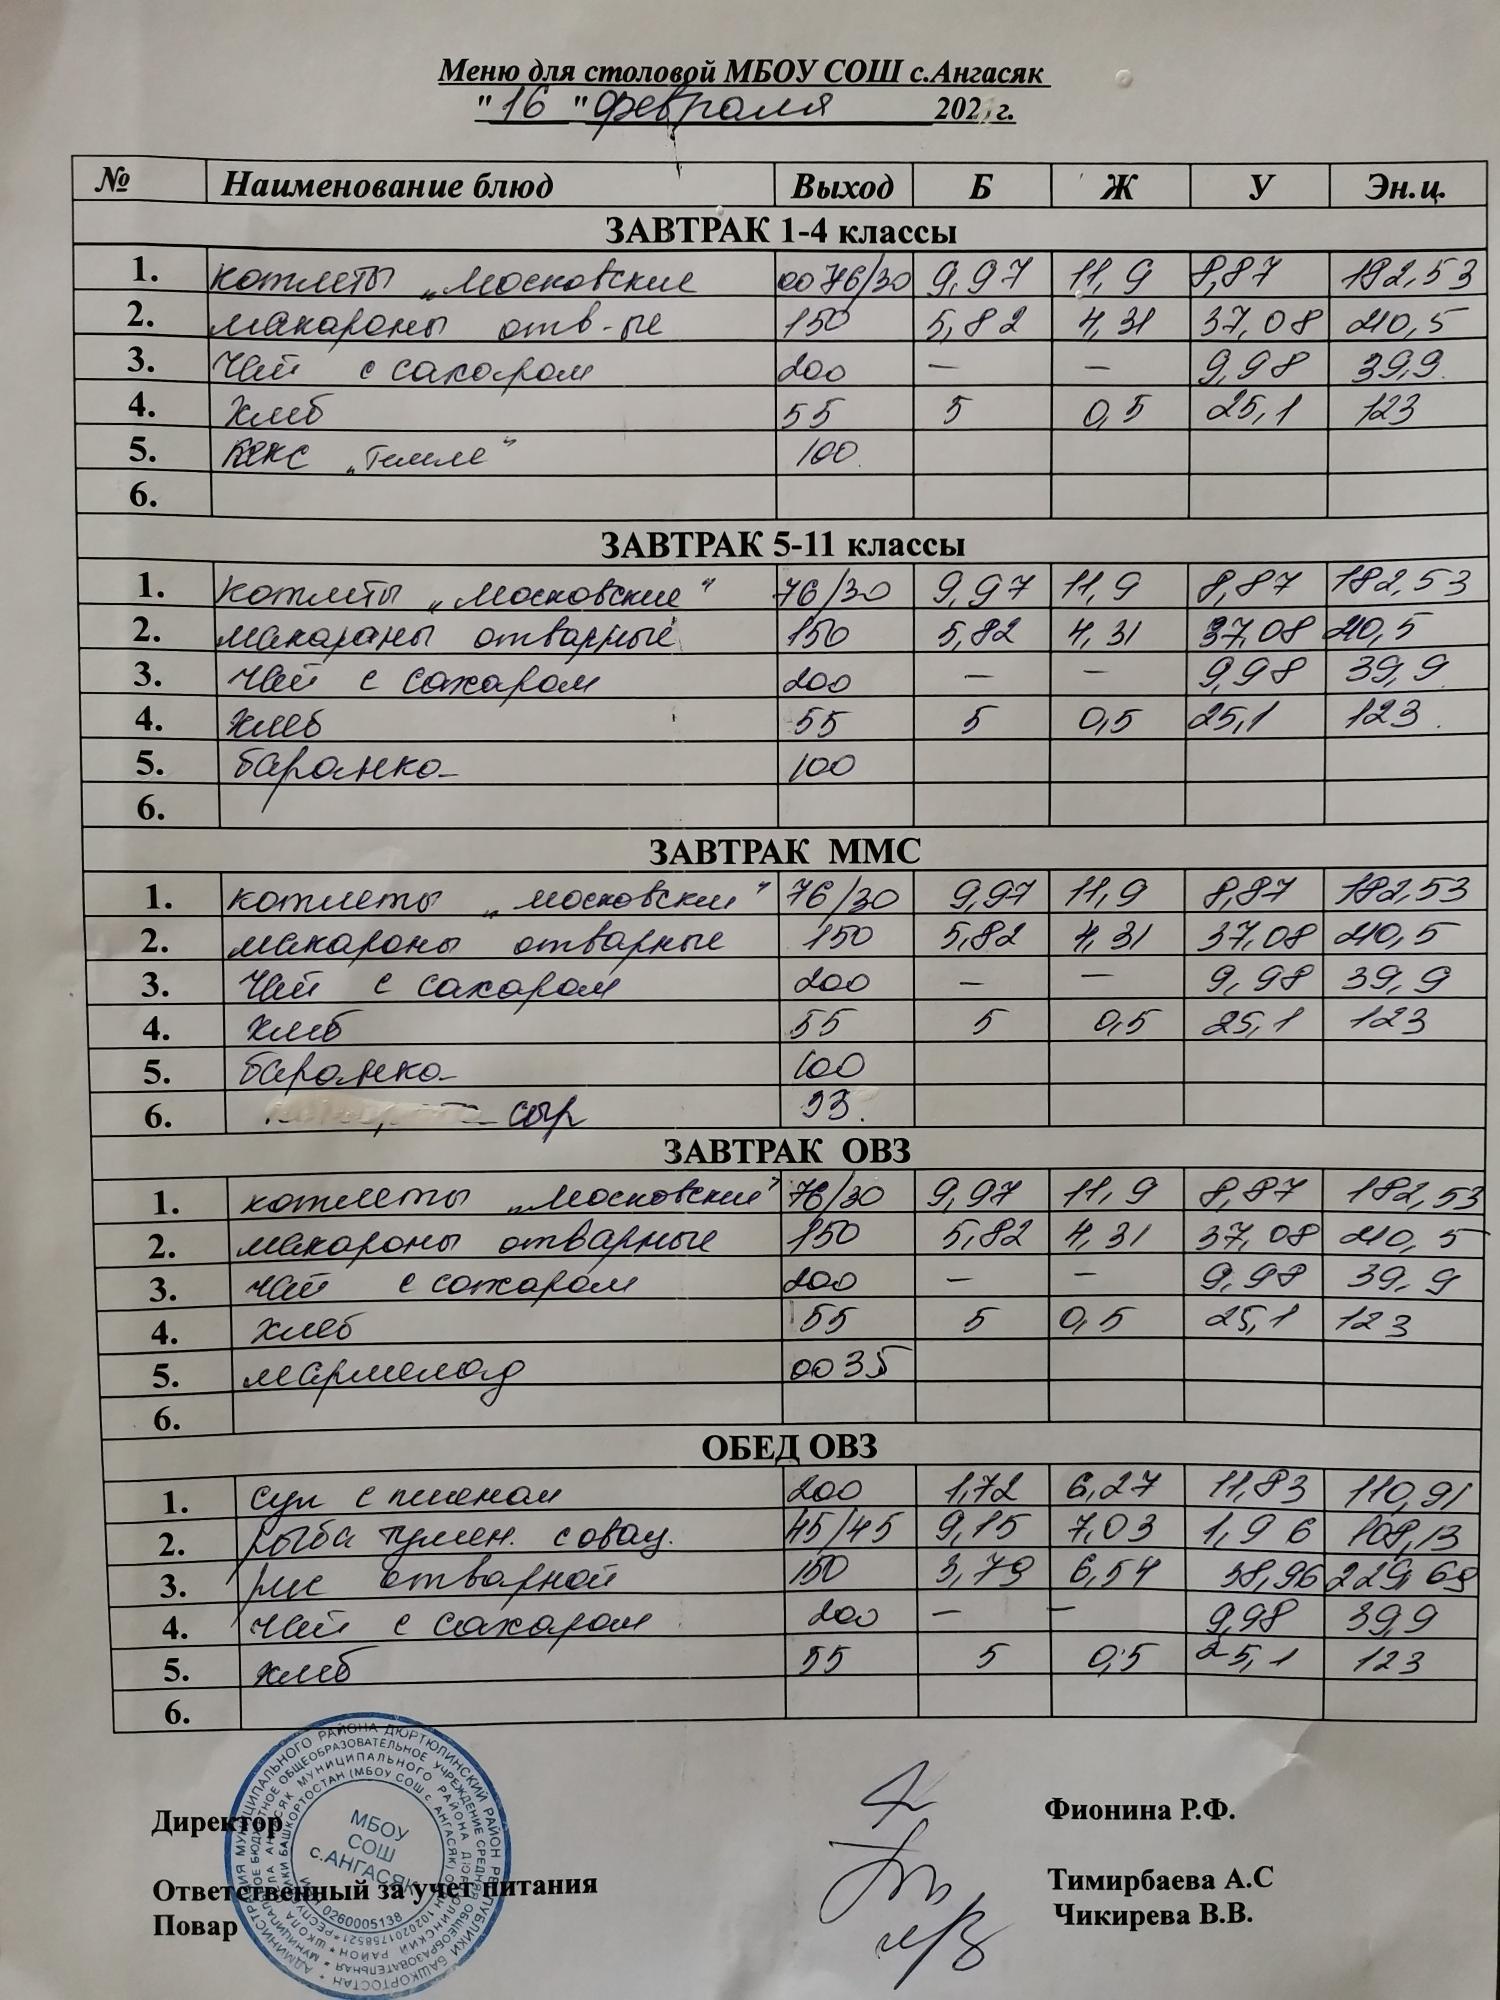 Меню для столовой МБОУ СОШ с.Ангасяк
"16" февраля 202 г.
№ Наименование блюд Выход Б Ж У Эн.ц.
ЗАВТРАК 1-4 классы
1. котлеты „Московские 0076/30 9,97 11,9 8,87 182,53
2. макароны отв-ые 150 5,82 4,31 37,08 210,5
3. Чай с сахаром 200 — — 9,98 39,9
4. Хлеб 55 5 0,5 25,1 123
5. кекс 100
6.
ЗАВТРАК 5-11 классы
1. котлеты „Московские" 76/30 9,97 11,9 8,87 182,53
2. макараны отварные 150 5,82 4,31 37,08 210,5
3. Чай с сахаром 200 — — 9,98 39,9
4. Хлеб 55 5 0,5 25,1 123
5. баранка 100
6.
ЗАВТРАК ММС
1. котлеты „московские" 76/30 9,97 11,9 8,87 182,53
2. макароны отварные 150 5,82 4,31 37,08 210,5
3. Чай с сахаром 200 — — 9,98 39,9
4. Хлеб 55 5 0,5 25,1 123
5. баранка 100
6. сыр 93
ЗАВТРАК ОВЗ
1. котлеты „Московские" 76/30 9,97 11,9 8,87 182,53
2. макароны отварные 150 5,82 4,31 37,08 210,5
3. чай с сахаром 200 — — 9,98 39,9
4. хлеб 55 5 0,5 25,1 123
5. мармелад 0035
6.
ОБЕД ОВЗ
1. суп с пшеном 200 1,72 6,27 11,83 110,91
2. рыба тушен. с овощ. 45/45 9,15 7,03 1,96 108,13
3. рис отварной 150 3,79 6,54 38,96 229,69
4. Чай с сахаром 200 — — 9,98 39,9
5. хлеб 55 5 0,5 25,1 123
6.
Директор Фионина Р.Ф.
МБОУ
СОШ
с.АНГАСЯК
Ответственный за учет питания Тимирбаева А.С
Повар Чикирева В.В.
ИНН 0260005138